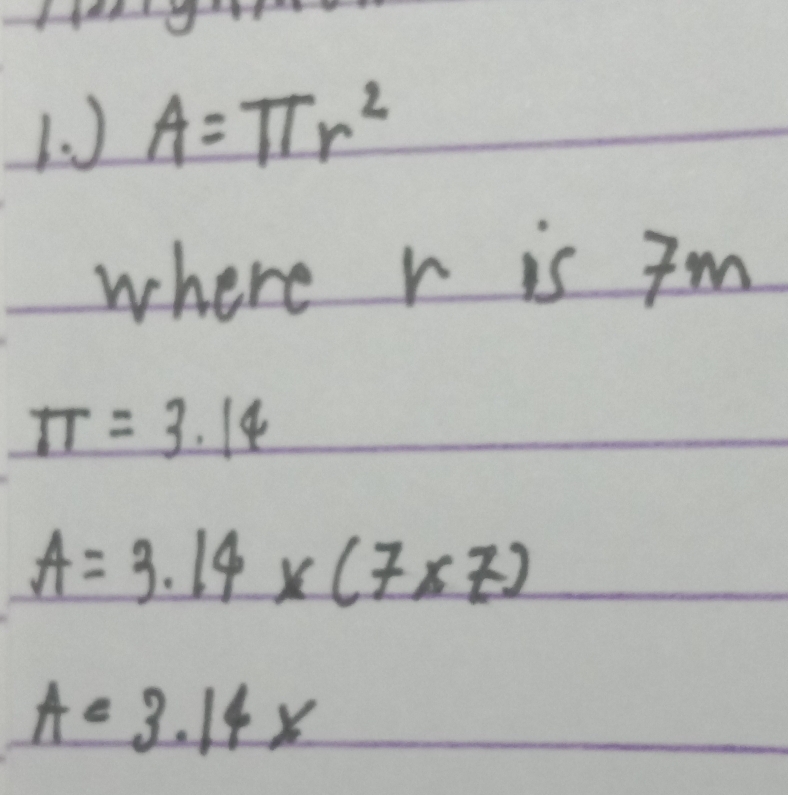 1.) A = πr²
where r is 7m
π = 3.14
A = 3.14 x (7x7)
A = 3.14 x